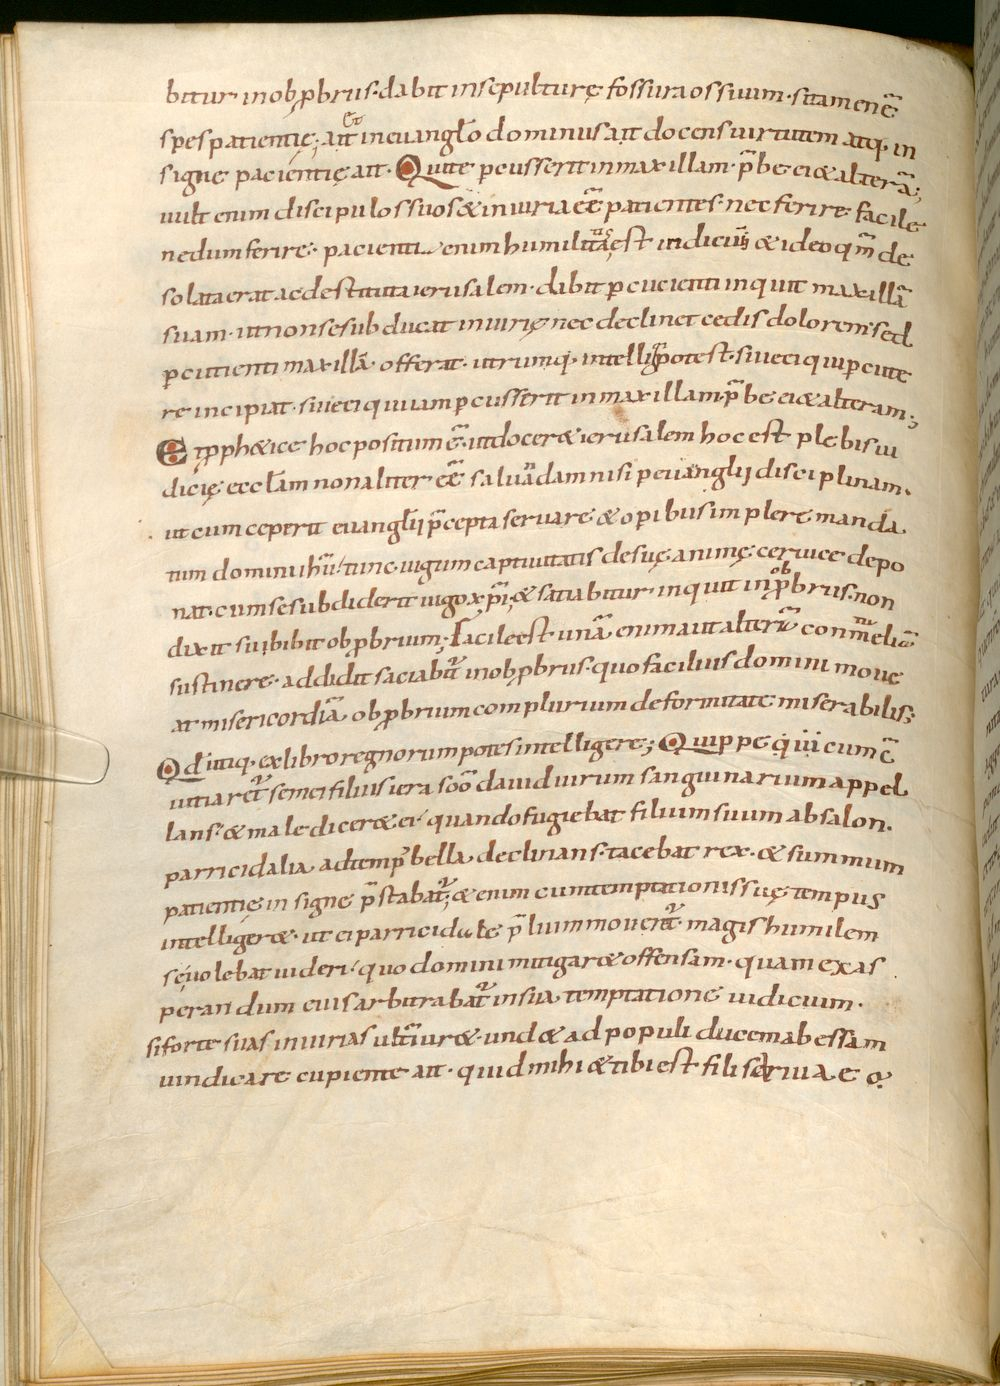 bitur in obp̄brius· dabit in sepulturę fossura ossuum· sitamen ē
spes patientię; Et aīt in euanglo dominus ait docens uirtutem atq· in
signe pacientię ait· Qui te p̄cusserit in maxillam· p̄be ei & alterā;
uult enim discipulos suos & iniuria eē patientes· nec ferire facile
nedum ferire· pacienti enim humilitas est indiciū & ideo qm̄ de
solata erat ac destituta ierusalem· dabit p̄cucienti inquit maxillā
suam· ut non se subducat iniurię nec declinet cedis dolorem· sed
p̄cutienti maxillā offerat· utrumq· intelligi potest· siue ei qui p̄cute
re incipiat· siue ei qui iam p̄cusserit in maxillam p̄be ei & alteram;
Et p̄ph&ice hoc positum ē· ut docer& ierusalem hoc est plebis iu
dicię eccl̄am non aliter eē saluādam nisi p̄ euanglij disciplinam·
ut cum ceperit euanglij p̄cepta seruare & opibus implere manda
tum dominicū· tunc iugum captiuitatis de suę animę ceruice depo
nat· cum se subdiderit iugo xp̄i; & satiabitur inquit in obp̄brius· non
dixit subibit obp̄brium; Facile est unā enim aut alterā contumeliā
sustinere· addidit saciabit̄ in obp̄brus· quo facilius domini moue
at misericordiā obp̄brium complurium deformitate miserabilis;
Qd̄ utiq· ex libro regnorum potes intelligere; Quippe q̇ui cum c̄
uitiaret̄ semei filius iera sc̄o dauid uirum sanguinarium appel
lans· & maledicer& ei· quando fugiebat filium suum absalon·
parricidalia adtemp̄ bella declinans· tacebat rex· & summum
patientię insigne p̄stabat̄; & enim cum temptationis suę tempus
intelliger&· ut ei parricidale p̄lium mouerēt· magis humilem
se uolebat uideri· quo domini mitigar& offensam· quam exas
perandum eius arbitrabat̄ in sua temptatione iudicium·
si forte suas iniurias ultū iur&· und& ad populi ducem abessam
uindicare cupiente ait· quid mihi & tibi est fili seruiae q·